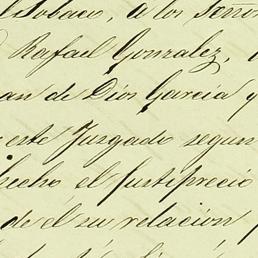 Tobaco, á los Seño
Rafael Gonzalez,
an de Dios García y
este Juzgado segun
hecho el justiprecio
de él su relación